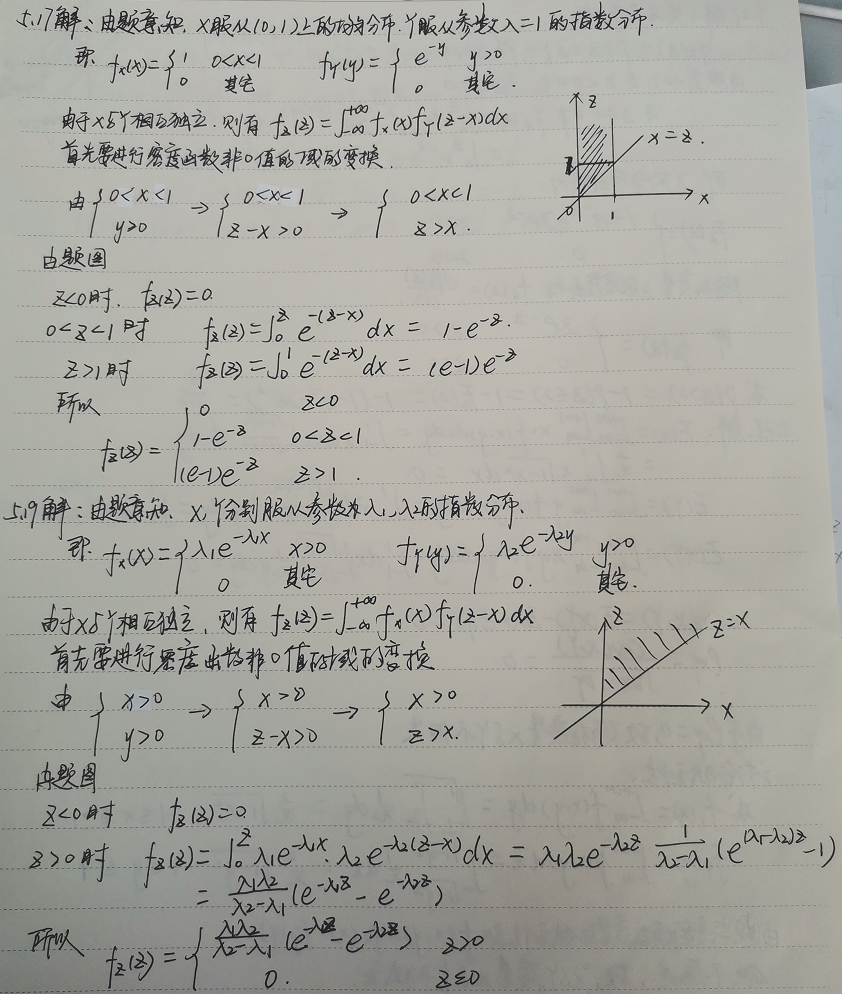 5.17解:由题意知,X服从(0,1)上的均匀分布.Y服从参数λ=1的指数分布.
即 fx(x)={1 0<x<1 0 其它 fY(y)={e^{-y} y>0 0 其它.
由于X与Y相互独立.则有 fz(z)=∫_{-∞}^{+∞}fx(x)fY(z-x)dx
首先要进行密度函数非0值的域的变换.
由{0<x<1 y>0 → {0<x<1 z-x>0 → {0<x<1 z>x.
z 1 x=z. x 0 1
由题图
z<0时. fz(z)=0.
0<z<1时 fz(z)=∫_0^z e^{-(z-x)}dx = 1-e^{-z}.
z>1时 fz(z)=∫_0^1 e^{-(z-x)}dx = (e-1)e^{-z}
所以 fz(z)={0 z<0 1-e^{-z} 0<z<1 (e-1)e^{-z} z>1.
5.19解:由题意知.X,Y分别服从参数为λ1,λ2的指数分布.
即.fx(x)={λ1e^{-λ1x} x>0 0 其它 fY(y)={λ2e^{-λ2y} y>0 0. 其它.
由于X与Y相互独立,则有 fz(z)=∫_{-∞}^{+∞}fx(x)fY(z-x)dx
首先要进行密度函数非0值的域的变换
由{x>0 y>0 → {x>0 z-x>0 → {x>0 z>x.
z z=x x
由题图
z<0时 fz(z)=0
z>0时 fz(z)=∫_0^z λ1e^{-λ1x}·λ2e^{-λ2(z-x)}dx = λ1λ2e^{-λ2z} \frac{1}{λ2-λ1}(e^{(λ1-λ2)z}-1)
= \frac{λ1λ2}{λ2-λ1}(e^{-λ1z}-e^{-λ2z})
所以 fz(z)={\frac{λ1λ2}{λ2-λ1}(e^{-λ1z}-e^{-λ2z}) z>0 0. z≤0